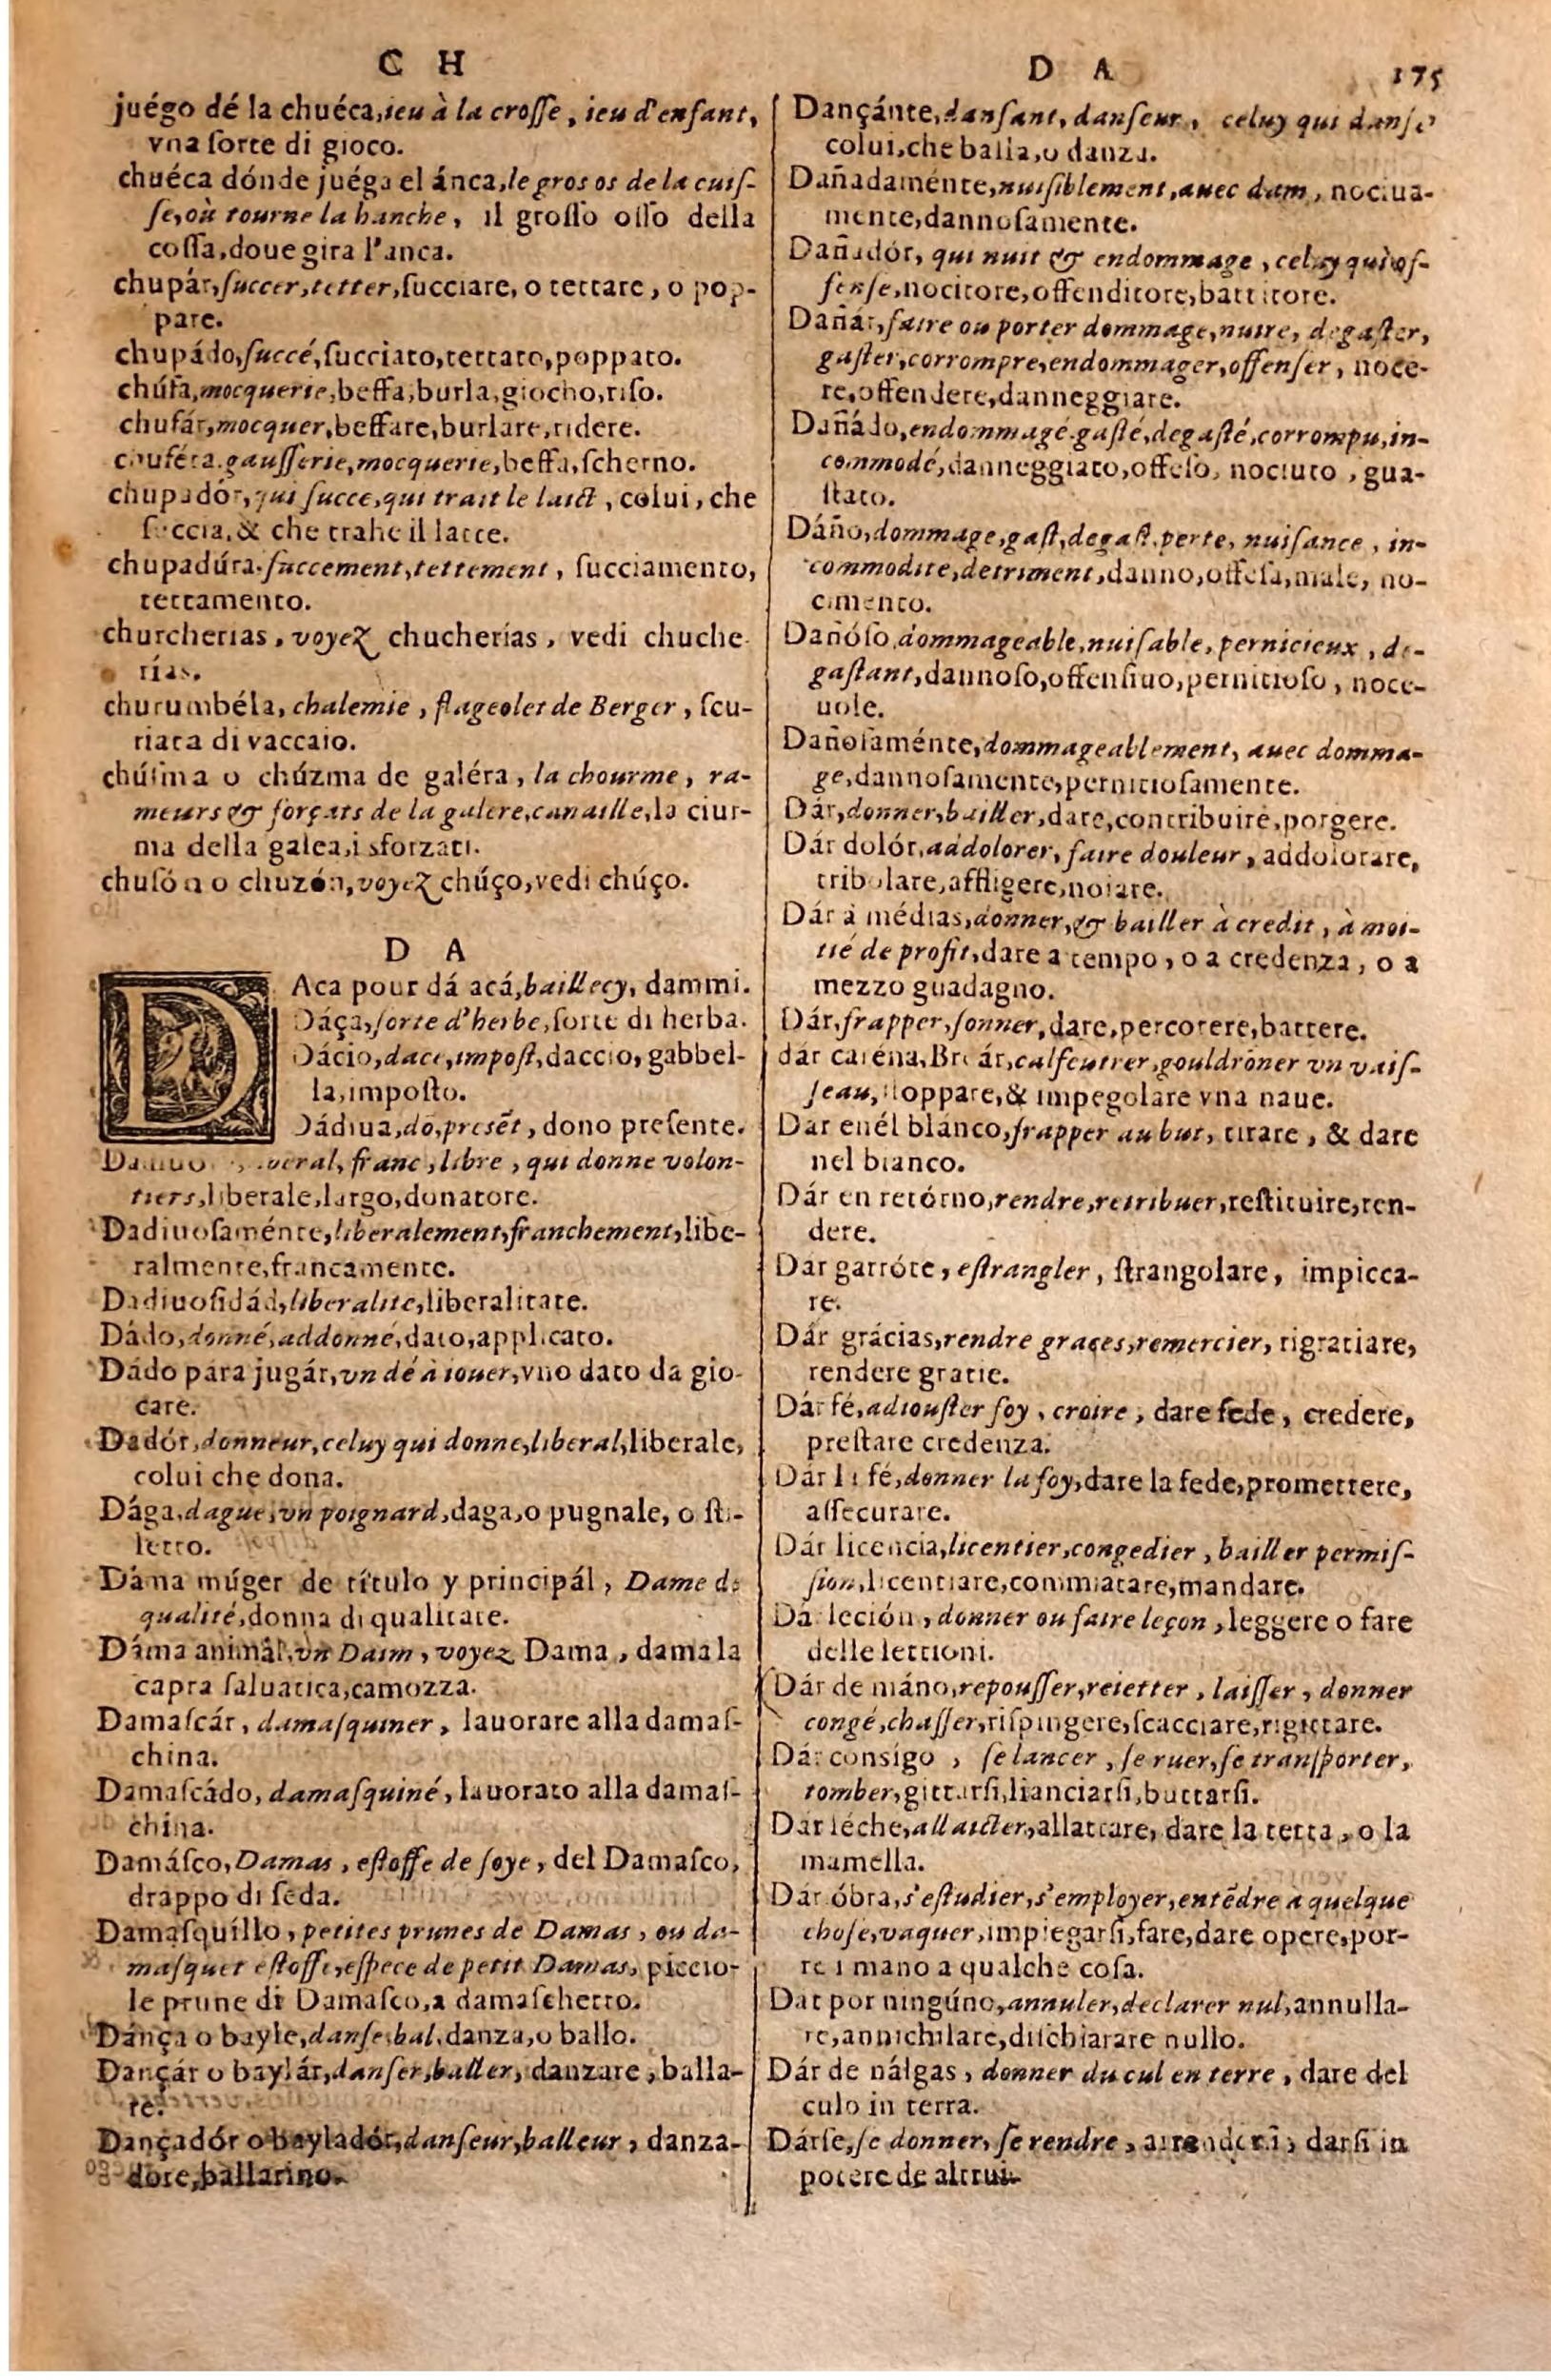 C H
juégo dé la chuéca, ieu à la croſſe, ieu d'enfant,
vna ſorte di gioco.
chuéca dónde juéga el ánca, le gros os de la cuiſ-
ſe, où tourne la hanche, il groſſo oſſo della
coſſa, doue gira l'anca.
chupár, ſuccer, tetter, ſucciare, o tettare, o pop-
pare.
chupádo, ſuccé, ſucciato, tettato, poppato.
chúfa, mocquerie, beffa, burla, giocho, riſo.
chufár, mocquer, beffare, burlare, ridere.
chuféta. gauſſerie, mocquerie, beffa, ſcherno.
chupadór, qui ſucce, qui trait le laict, colui, che
ſuccia, & che trahe il latte.
chupadúra. ſuccement, tettement, ſucciamento,
tettamento.
churcherias, voyez chucherías, vedi chuche
rías.
churumbéla, chalemie, flageolet de Berger, ſcu-
riata di vaccaio.
chúſma o chúzma de galéra, la chourme, ra-
meurs & forçats de la galere, canaille, la ciur-
ma della galea, i sforzati.
chuſón o chuzón, voyez chúço, vedi chúço.
D A
DAca pour dá acá, baillecy, dammi.
Dáça, ſorte d'herbe, ſorte di herba.
Dácio, dace, impoſt, daccio, gabbel-
la, impoſto.
Dádiua, dō, preſēt, dono preſente.
liberal, franc, libre, qui donne volon-
tiers, liberale, largo, donatore.
Dadiuoſaménte, liberalement, franchement, libe-
ralmente, francamente.
Dadiuoſidád, liberalité, liberalitate.
Dádo, donné, addonné, dato, applicato.
Dádo pára jugár, vn dé à iouer, vno dato da gio-
care.
Dadór, donneur, celuy qui donne, liberal, liberale,
colui che dona.
Dága, dague, vn poignard, daga, o pugnale, o ſti-
letto.
Dáma múger de título y principál, Dame de
qualité, donna di qualitate.
Dáma animál, vn Daim, voyez Dama, dama la
capra ſaluatica, camozza.
Damaſcár, damaſquiner, lauorare alla damaſ-
china.
Damaſcádo, damaſquiné, lauorato alla damaſ-
china.
Damáſco, Damas, eſtoffe de ſoye, del Damaſco,
drappo di ſeda.
Damaſquíllo, petites prunes de Damas, ou da-
maſquet eſtoffe, eſpece de petit Damas, piccio-
le prune di Damaſco, a damaſchetto.
Dánça o bayle, danſe, bal, danza, o ballo.
Dançár o baylár, danſer, baller, danzare, balla-
re.
Dançadór o bayladór, danſeur, balleur, danza-
dore, ballarino.
D A 175
Dançánte, danſant, danſeur, celuy qui danſe
colui, che balla, o danza.
Dañadaménte, nuiſiblement, auec dam, nociua-
mente, dannoſamente.
Dañadór, qui nuit & endommage, celuy qui of-
fenſe, nocitore, offenditore, battitore.
Dañár, faire ou porter dommage, nuire, degaſter,
gaſter, corrompre, endommager, offenſer, noce-
re, offendere, danneggiare.
Dañádo, endommagé. gaſté, degaſté, corrompu, in-
commodé, danneggiato, offeſo, nociuto, gua-
ſtato.
Dáño, dommage, gaſt, degaſt. perte, nuiſance, in-
commodité, detriment, danno, offeſa, male, no-
cimento.
Dañóſo, dommageable, nuiſable, pernicieux, de-
gaſtant, dannoſo, offenſiuo, pernitioſo, noce-
uole.
Dañoſaménte, dommageablement, auec domma-
ge, dannoſamente, pernitioſamente.
Dár, donner, bailler, dare, contribuire, porgere.
Dár dolór, addolorer, faire douleur, addolorare,
tribolare, affligere, noiare.
Dár à médias, donner, & bailler à credit, à moi-
tié de profit, dare a tempo, o a credenza, o a
mezzo guadagno.
Dár, frapper, ſonner, dare, percotere, battere.
dár caréna, Breár, calfeutrer, gouldroner vn vaiſ-
ſeau, ſtoppare, & impegolare vna naue.
Dar enél blánco, frapper au but, tirare, & dare
nel bianco.
Dár en retórno, rendre, retribuer, reſtituire, ren-
dere.
Dar garróte, eſtrangler, ſtrangolare, impicca-
re.
Dár grácias, rendre graces, remercier, rigratiare,
rendere gratie.
Dár fé, adiouſter foy, croire, dare fede, credere,
preſtare credenza.
Dár la fé, donner la foy, dare la fede, promettere,
aſſecurare.
Dár licencia, licentier, congedier, bailler permiſ-
ſion, licentiare, commiatare, mandare.
Dár leción, donner ou faire leçon, leggere o fare
delle lettioni.
Dár de máno, repouſſer, reietter, laiſſer, donner
congé, chaſſer, riſpingere, ſcacciare, rigittare.
Dár consígo, ſe lancer, ſe ruer, ſe tranſporter,
tomber, gittarſi, lianciarſi, buttarſi.
Dár léche, allaicter, allattare, dare la tetta, o la
mamella.
Dár óbra, s'eſtudier, s'employer, entēdre à quelque
choſe, vaquer, impiegarſi, fare, dare opere, por-
re i mano a qualche coſa.
Dar por ningúno, annuler, declarer nul, annulla-
re, annichilare, diſchiarare nullo.
Dár de nálgas, donner du cul en terre, dare del
culo in terra.
Dárſe, ſe donner, ſe rendre, arrenderſi, darſi in
potere de altrui.